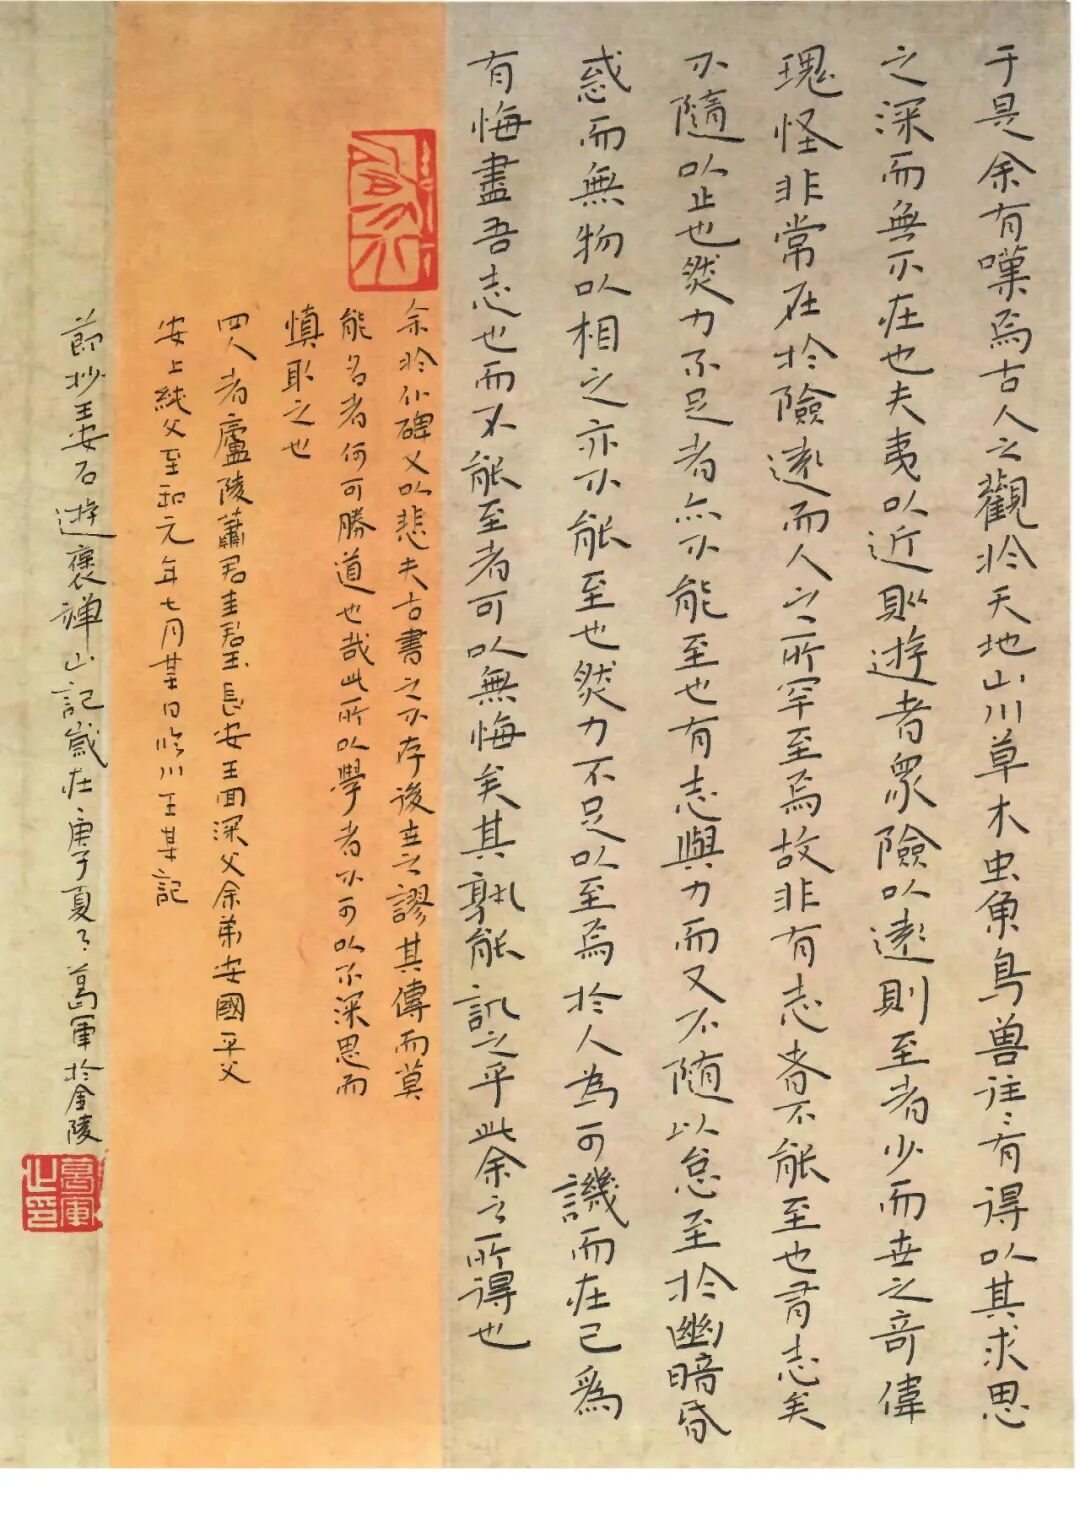 于是余有嘆焉古人之觀於天地山川草木虫魚鳥兽往〻有得以其求思
之深而無不在也夫夷以近則遊者衆險以遠則至者少而世之奇偉
瑰怪非常在於險遠而人之所罕至焉故非有志者不能至也有志矣
不隨以止也然力不足者亦不能至也有志與力而又不随以怠至於幽暗昏
惑而無物以相之亦不能至也然力不足以至焉於人為可譏而在己為
有悔盡吾志也而不能至者可以無悔矣其孰能訊之乎此余之所得也
余於仆碑又以悲夫古書之不存後世之謬其傳而莫
能名者何可勝道也哉此所以學者不可以不深思而
慎取之也
四人者廬陵蕭君圭君玉長安王回深父余弟安國平父
安上純父至和元年七月某日临川王某記
節抄王安石遊褒禅山記歲在庚子夏〻葛軍於金陵
葛軍之印